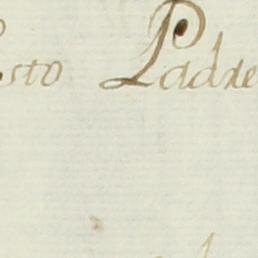 sto Padre